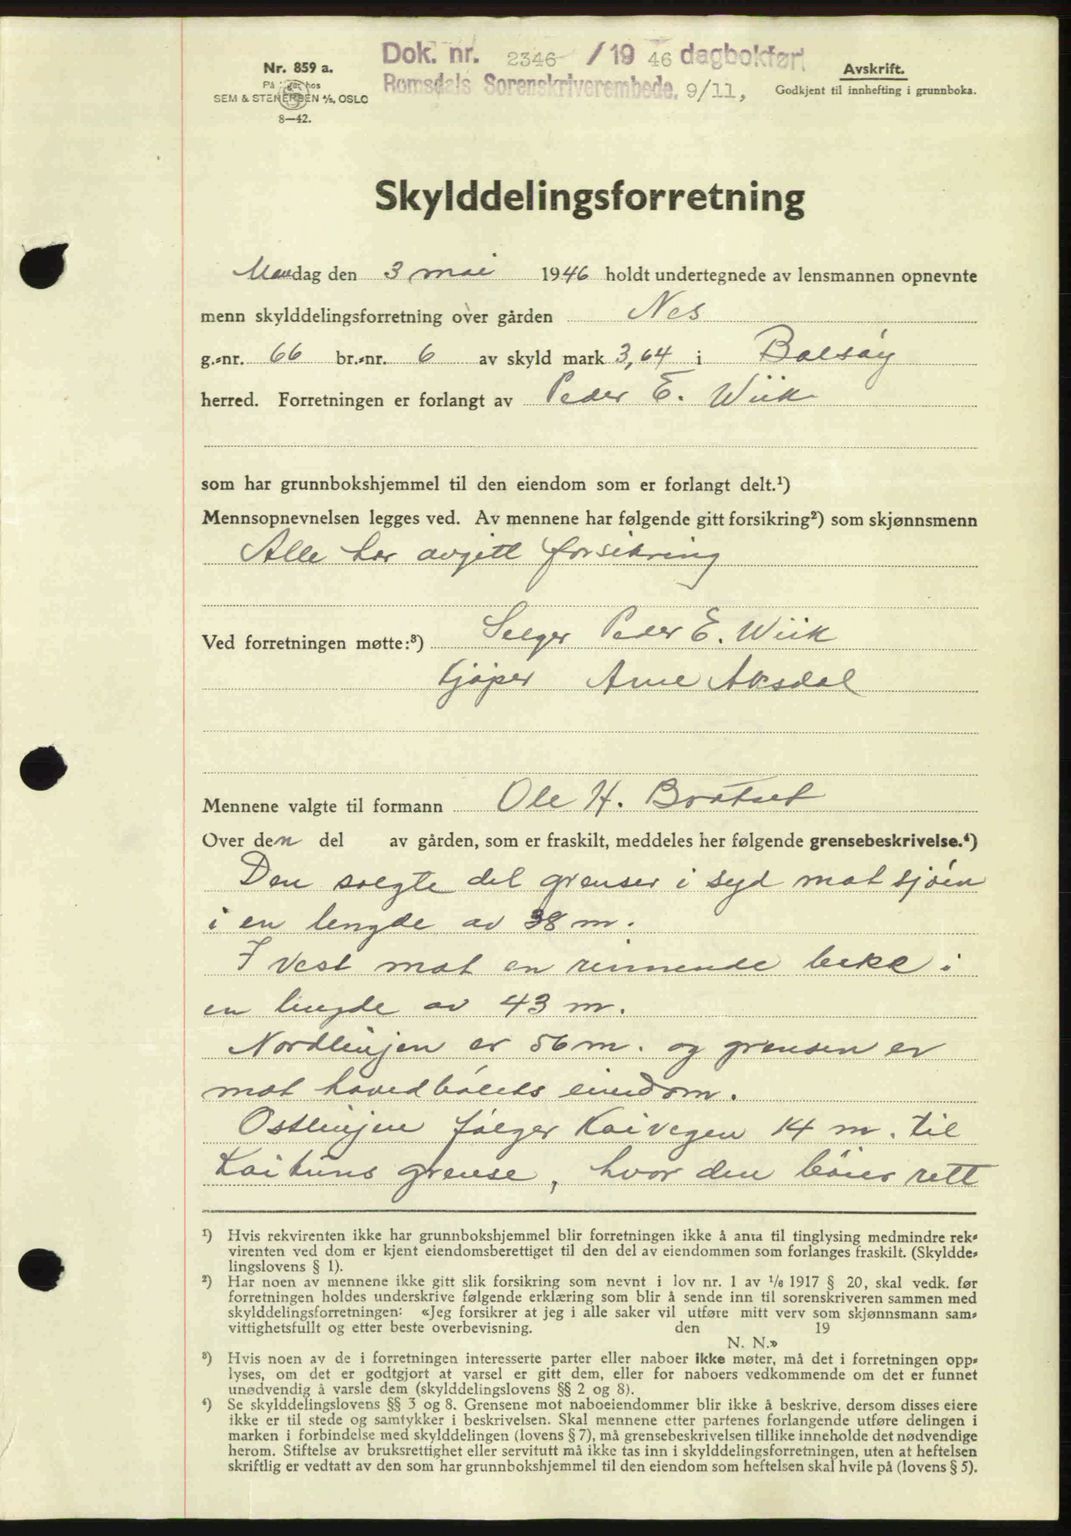 Nr. 859 a.
SEM & STENERSEN A/S, OSLO
8—42.
Dok. nr. 2346 / 19 46 dagbokført
Romsdals Sorenskriverembede. 9/11,
Avskrift.
Godkjent til innhefting i grunnboka.
Skylddelingsforretning
Mandag den 3 mai 1946 holdt undertegnede av lensmannen opnevnte
menn skylddelingsforretning over gården Nes
g.-nr. 66 br.-nr. 6 av skyld mark 3,64 i Bolsøy
herred. Forretningen er forlangt av Peder E. Wiik
som har grunnbokshjemmel til den eiendom som er forlangt delt.¹)
Mennsopnevnelsen legges ved. Av mennene har følgende gitt forsikring²) som skjønnsmenn
Alle har avgitt forsikring
Ved forretningen møtte:³) Selger Peder E. Wiik
Kjøper Arne Aksdal
Mennene valgte til formann Ole H. Bratset
Over den del av gården, som er fraskilt, meddeles her følgende grensebeskrivelse.⁴)
Den solgte del grenser i syd mot sjøen
i en lengde av 38 m.
I vest mot en rinnende bekk i
en lengde av 43 m.
Nordlinjen er 56 m. og grensen er
mot hovedbølets eiendom.
Ostlinjen følger Kaivegen 14 m. til
Kaituns grense, hvor den bøier rett
¹) Hvis rekvirenten ikke har grunnbokshjemmel blir forretningen ikke å anta til tinglysing medmindre rek-
virenten ved dom er kjent eiendomsberettiget til den del av eiendommen som forlanges fraskilt. (Skyldde-
lingslovens § 1).
²) Har noen av mennene ikke gitt slik forsikring som nevnt i lov nr. 1 av 1/6 1917 § 20, skal vedk. før
forretningen holdes underskrive følgende erklæring som blir å sende inn til sorenskriveren sammen med
skylddelingsforretningen: «Jeg forsikrer at jeg i alle saker vil utføre mitt verv som skjønnsmann sam-
vittighetsfullt og etter beste overbevisning. den 19
N. N.»
³) Hvis noen av de i forretningen interesserte parter eller naboer ikke møter, må det i forretningen opp-
lyses, om det er godtgjort at varsel er gitt dem, eller for naboers vedkommende om det er funnet
unødvendig å varsle dem (skylddelingslovens §§ 2 og 8).
⁴) Se skylddelingslovens §§ 3 og 8. Grensene mot naboeiendommer blir ikke å beskrive, dersom disses eiere
ikke er til stede og samtykker i beskrivelsen. Skal mennene etter partenes forlangende utføre delingen i
marken i forbindelse med skylddelingen (lovens § 7), må grensebeskrivelsen tillike inneholde det nødvendige
herom. Stiftelse av bruksrettighet eller servitutt må ikke tas inn i skylddelingsforretningen, uten at heftelsen
skriftlig er vedtatt av den som har grunnbokshjemmel til den eiendom som heftelsen skal hvile på (lovens § 5).